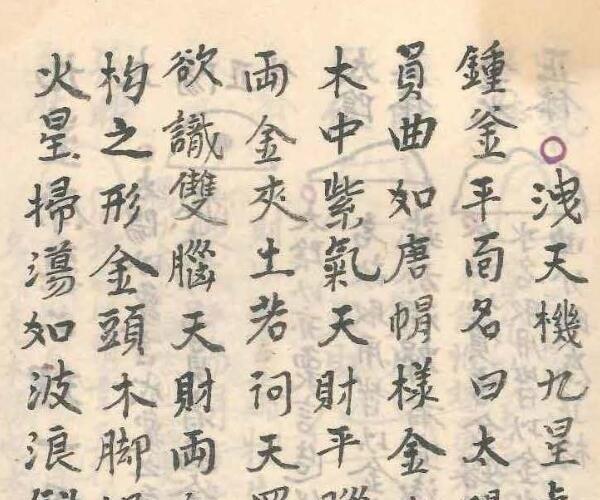 ○洩天機九星
鍾釡平面名曰太陽
員曲如唐帽樣金
木中紫氣天財平腦
両金夾土若祠天罡
欲識雙腦天財両
枃之形金頭木脚
火星掃蕩如波浪